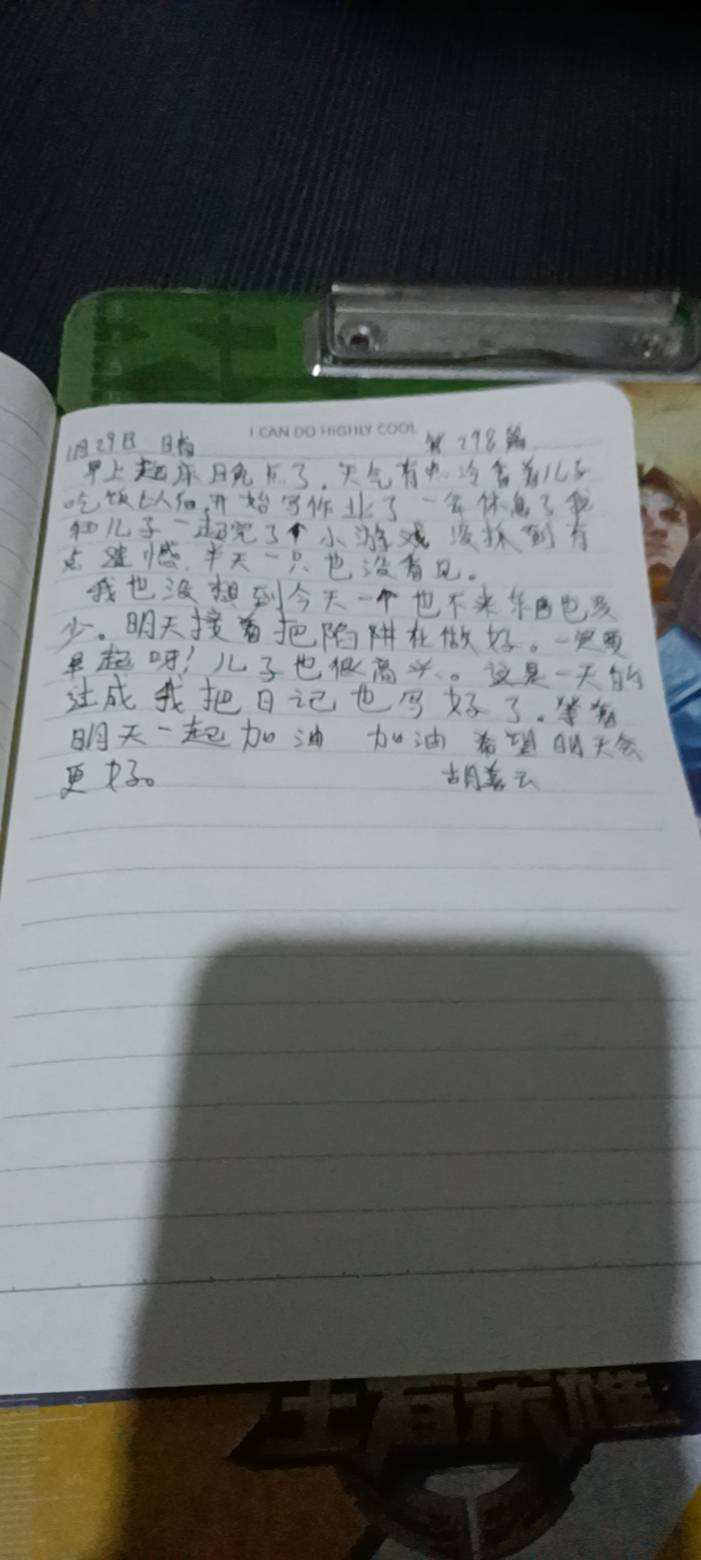 I CAN DO HIGHLY COOL
1月29日 日 第298篇
早上起床晚点了.天气有点冷看着儿子
吃饭 开始写作业了 一会休息了我
和儿子一起完了个小游戏 没抓到有
点遗憾.半天一只也没看见。
我也没想到今天一个也不来东西也变
少。明天接着把陷阱在做好。一定要
早起呀！儿子也很高兴。这是一天的
达成 我把日记也写好了.等着
明天一起加油 加油 希望明天会
更好。 胡善云
王者荣耀